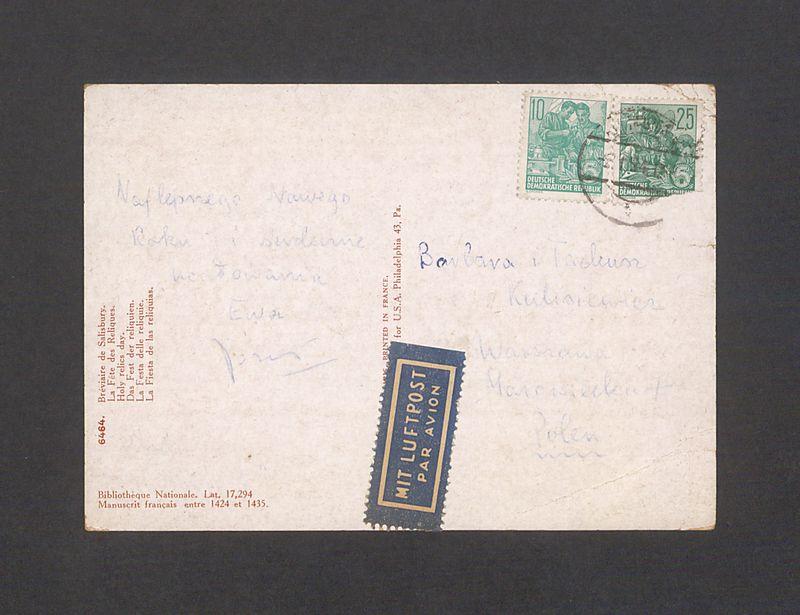 10
DEUTSCHE
DEMOKRATISCHE REPUBLIK
25
DEUTSCHE
DEMOKRATISCHE REPUBLIK
Najlepszego Nowego
Roku i serdeczne
Ewa
Barbara i Tadeusz
Kulisiewicz
Warszawa
Polen
6464. Bréviaire de Salisbury.
La Fête des Reliques.
Holy relics day.
Das Fest der reliquien.
La Festa delle reliquie.
La Fiesta de las reliquias.
PRINTED IN FRANCE.
for U.S.A. Philadelphia 43, Pa.
MIT LUFTPOST
PAR AVION
Bibliothèque Nationale. Lat. 17,294
Manuscrit français entre 1424 et 1435.